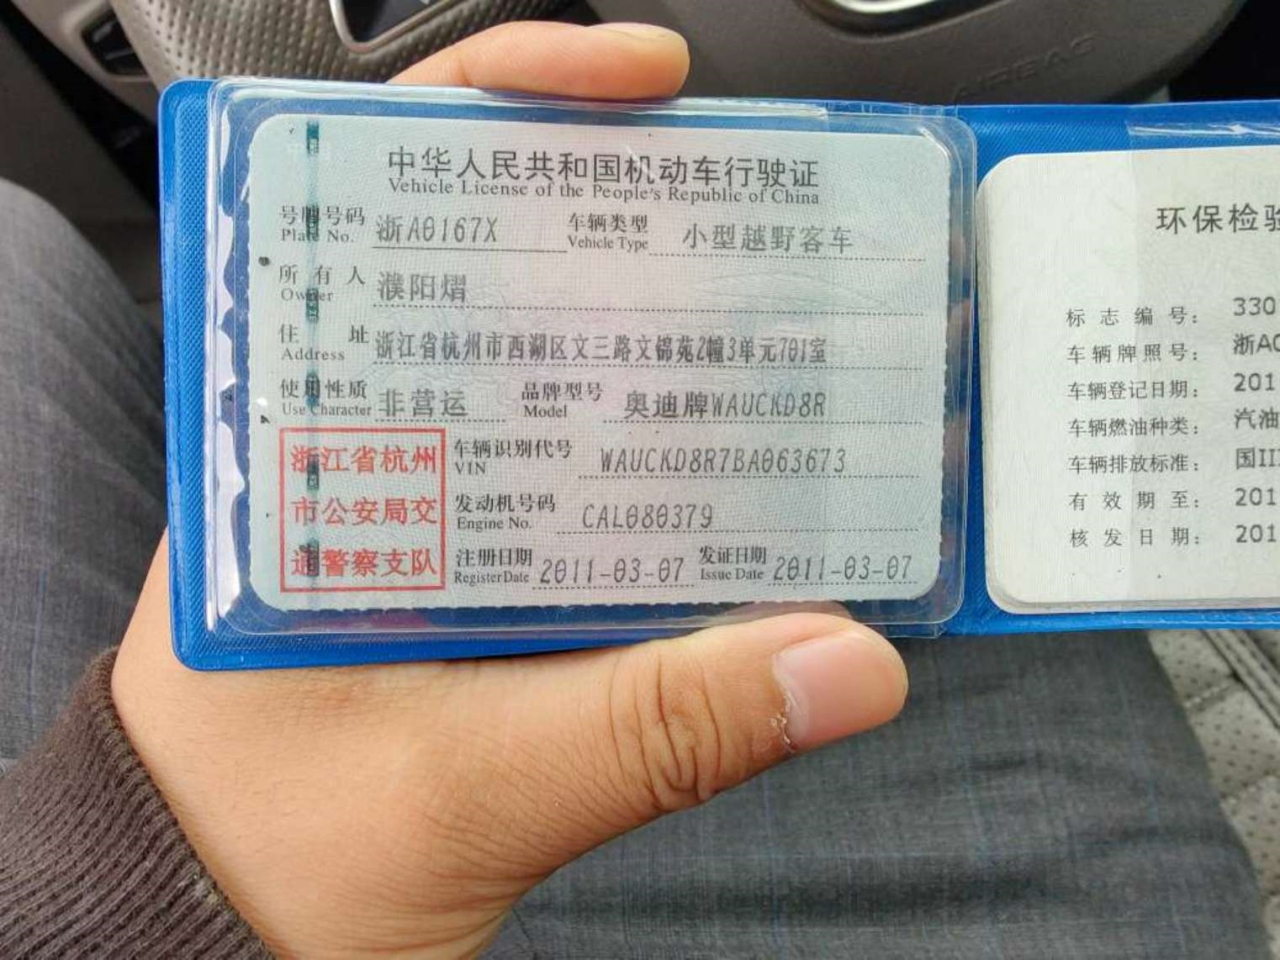 AIRBAG
中华人民共和国机动车行驶证
Vehicle License of the People's Republic of China
号牌号码 浙A0167X 车辆类型 小型越野客车
Plate No. Vehicle Type
所有人 濮阳熠
Owner
住址 浙江省杭州市西湖区文三路文锦苑2幢3单元701室
Address
使用性质 非营运 品牌型号 奥迪牌WAUCKD8R
Use Character Model
浙江省杭州
市公安局交
通警察支队
车辆识别代号 WAUCKD8R7BA063673
VIN
发动机号码 CAL080379
Engine No.
注册日期 2011-03-07 发证日期 2011-03-07
Register Date Issue Date
环保检验
标志编号： 330
车辆牌照号： 浙A0
车辆登记日期： 201
车辆燃油种类： 汽油
车辆排放标准： 国III
有效期至： 201
核发日期： 201